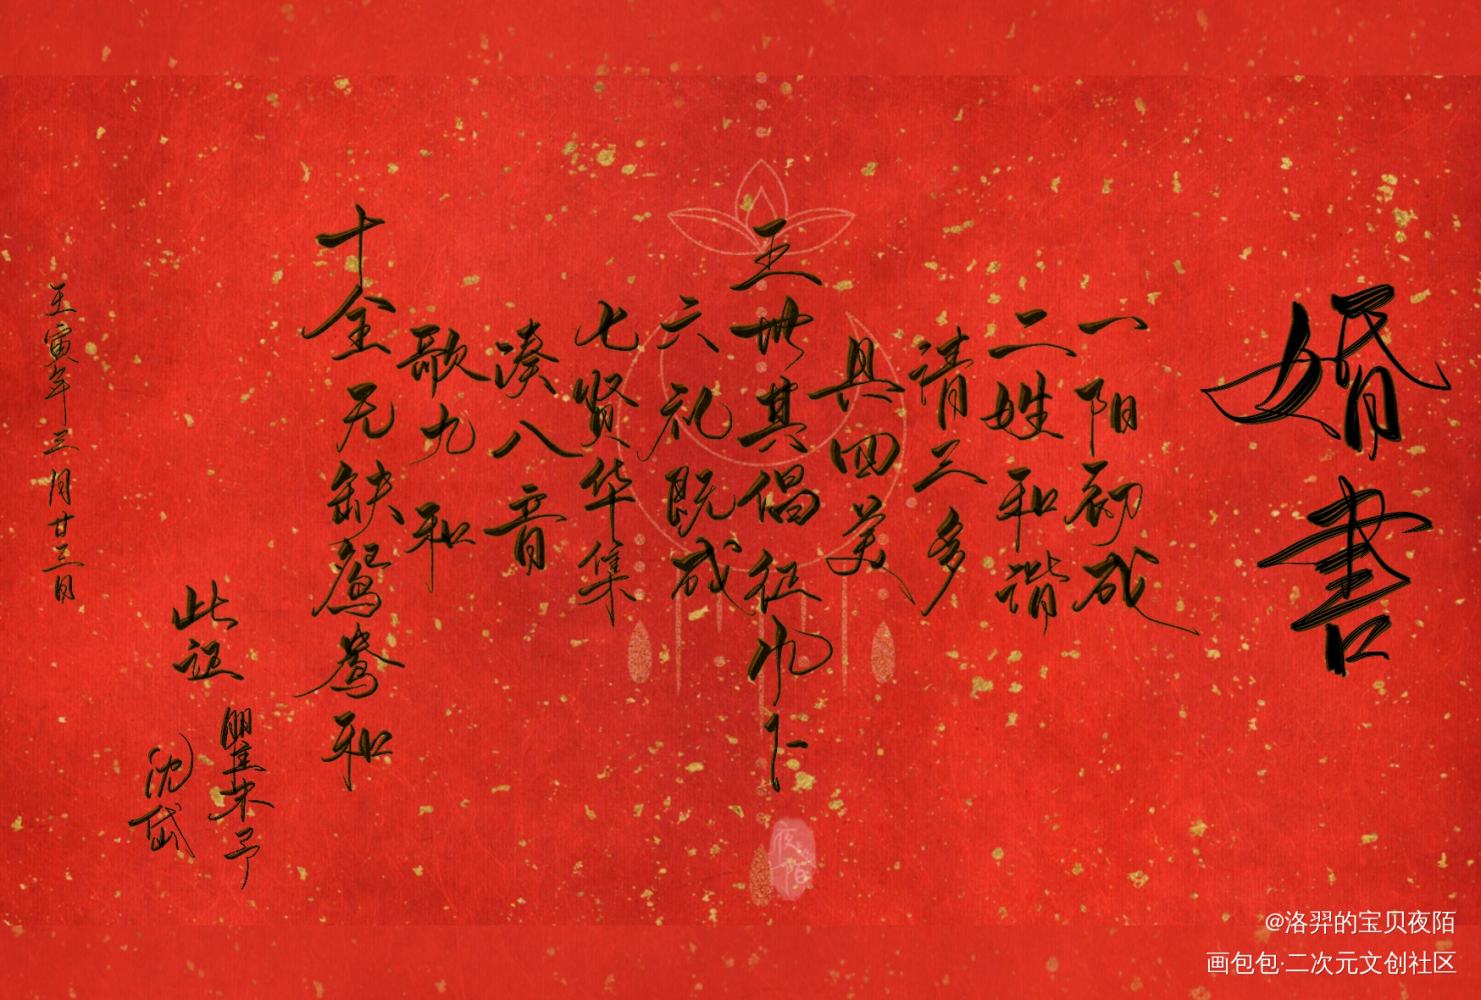 婚書
一阳初成
二姓和谐
请三多
具四美
五世其倡征凤卜
六礼既成
七贤华集
凑八音
歌九和
十全无缺鸳鸯和
此证
瞿朱予
沈岱
壬寅年三月廿三日
夜陌
@洛羿的宝贝夜陌
画包包·二次元文创社区